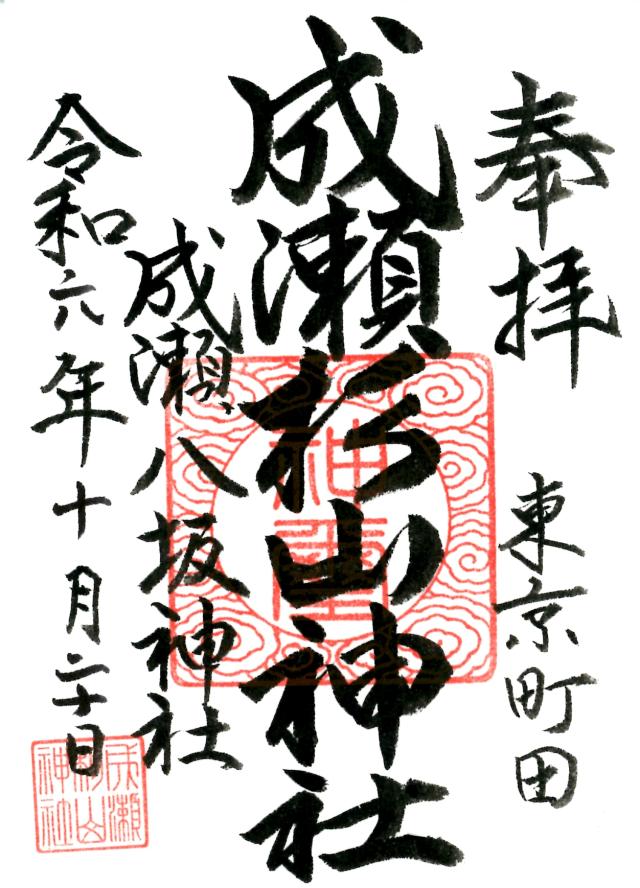 奉拝
東京町田
成瀬杉山神社
成瀬八坂神社
令和六年十月二十日
成瀬
杉山
神社